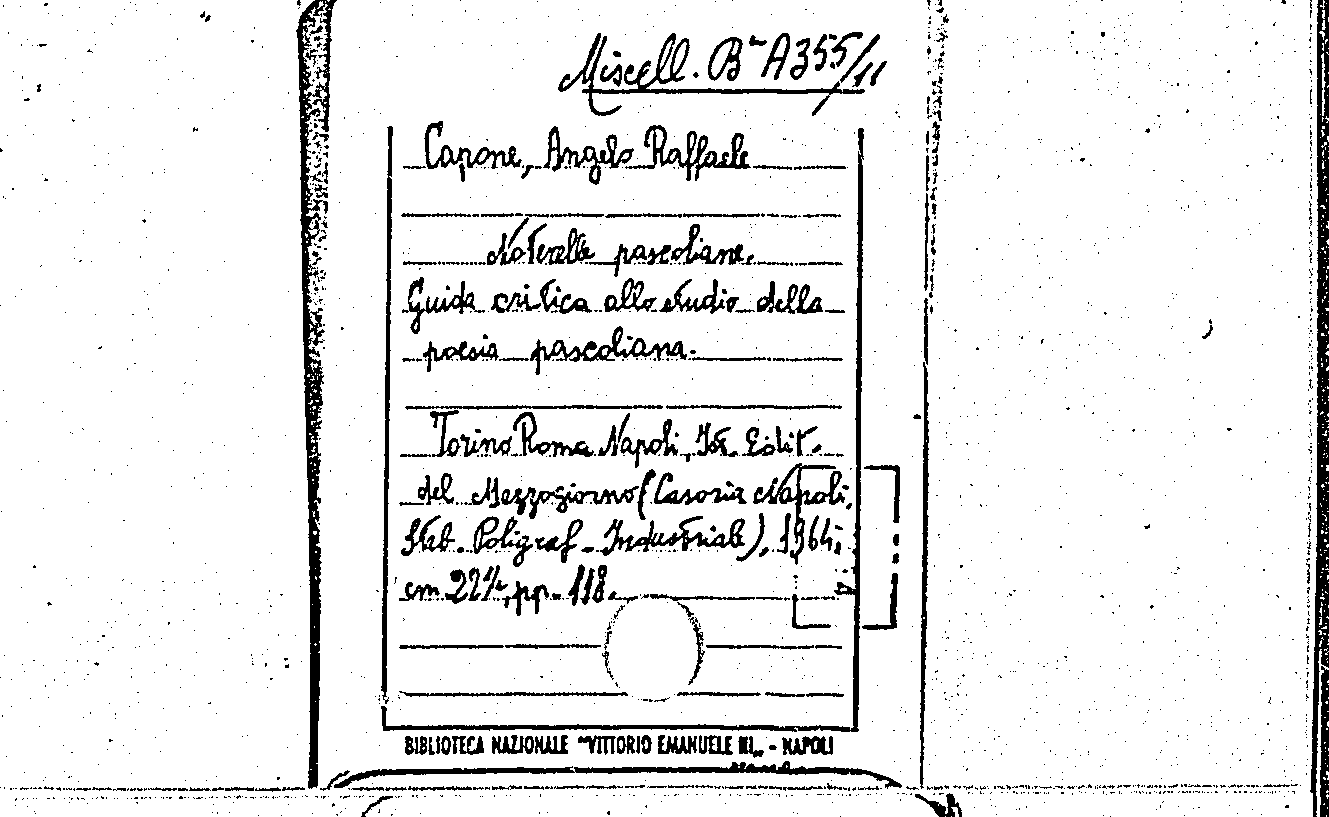 Miscell. Bᵃ A355/11
Capone, Angelo Raffaele
Noterelle pascoliane.
Guida critica allo studio della
poesia pascoliana.
Torino Roma Napoli, Ist. Edit.
del Mezzogiorno (Casoria Napoli,
Stab. Poligraf. Industriale), 1964,
cm 22½, pp. 118.
BIBLIOTECA NAZIONALE "VITTORIO EMANUELE III„ - NAPOLI